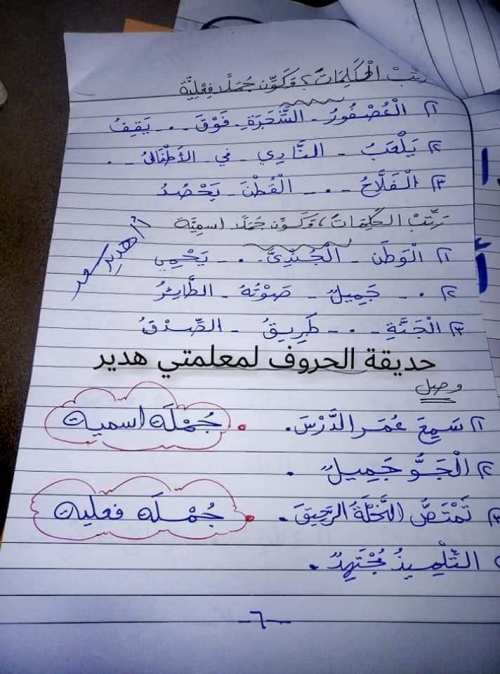 رَتِّبْ الْكَلِمَاتِ؛ وَكَوِّن جُمَلًا فِعْلِيَّة
١) الْعُصْفُورُ - الشَّجَرَةِ - فَوْقَ - . - يَقِفُ
٢) يَلْعَبُ - النَّادِي - فِي - الْأَطْفَالُ - .
٣) الْفَلَّاحُ - . - الْقُطْنَ - يَحْصُدُ
رَتِّب الكَلِمَاتِ، وَكَوِّن جُمَلًا اسمِيَّة
١) الْوَطَنَ - الْجُنْدِيُّ - . - يَحْمِي
أ/ هدير سعد
٢) . - جَمِيلٌ - صَوْتُهُ - الطَّائِرُ
٣) الْجَنَّةِ - . - طَرِيقُ - الصِّدْقُ
حديقة الحروف لمعلمتي هدير
وصل
١) سَمِعَ عُمَر الدَّرْسَ. • جُمْلَة اسمية
٢) الْجَوُّ جَمِيلٌ .
٣) تَمْتَصُّ النَّحْلَةُ الرَّحِيقَ. • جُمْلَة فعلية
التِّلْمِيذُ مُجْتَهِدٌ .
-٦-